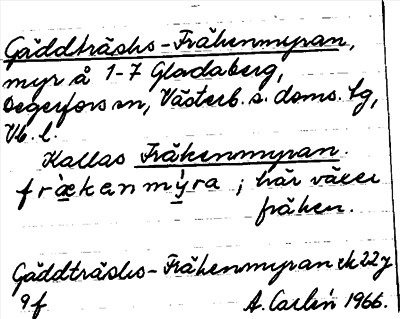 Gäddträsks-Fräkenmyran,
myr å 1-7 Gladaberg,
Degerfors sn, Västerb. s. doms. tg,
Vb. l.
Kallas Fräkenmyran.
frækenmýra ; här växer
fräken.
Gäddträsks-Fräkenmyran ek 22 y
9 f A. Carlén 1966.